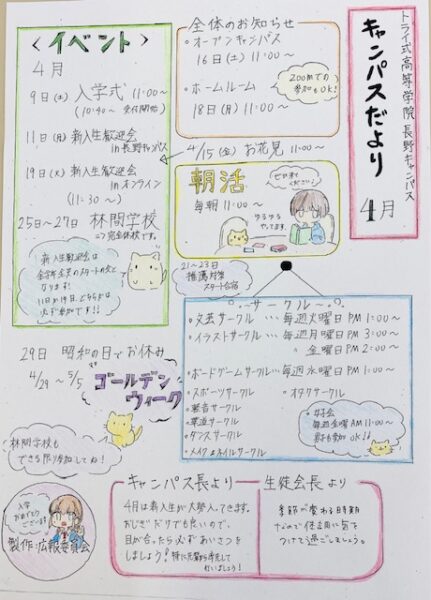 トライ式高等学院 長野キャンパス
キャンパスだより
4月
全体のお知らせ
・オープンキャンパス
16日(土) 11:00〜
・ホームルーム
18日(月) 11:00〜
zoomでの
参加もOK!
〈イベント〉
4月
9日(土) 入学式 11:00〜
(10:40〜 受付開始)
11日(月) 新入生歓迎会
in 長野キャンパス
4/15(金) お花見 11:00〜
19日(火) 新入生歓迎会
in オンライン
(11:30〜)
25日〜27日 林間学校
→完全休校です。
新入生歓迎会は
全学年全員のスタートの会と
なります!
11日か19日、どちらかは
必ず参加です!!
朝活
毎朝 11:00〜
ゆるゆる
やってます。
21〜23日
推薦対策
スタート合宿
〜サークル〜
・文芸サークル… 毎週火曜日PM 1:00〜
・イラストサークル… 毎週月曜日PM 3:00〜
金曜日PM 2:00〜
・ボードゲームサークル… 毎週水曜日PM 1:00〜
・スポーツサークル
・オタクサークル
・軽音サークル
・華道サークル
・ダンスサークル
・メイク&ネイルサークル
毎週金曜AM 11:00〜
29日 昭和の日でお休み
4/29〜5/5
ゴールデン
ウィーク
林間学校も
できる限り参加してね!
入学
おめでとう
ございます
製作:広報委員会
キャンパス長より
4月は新入生が大勢入ってきます。
おじぎだけでも良いので、
目が合ったら必ずあいさつを
しましょう!
生徒会長より
季節が変わる時期
なので体調に気を
つけて過ごしましょう。